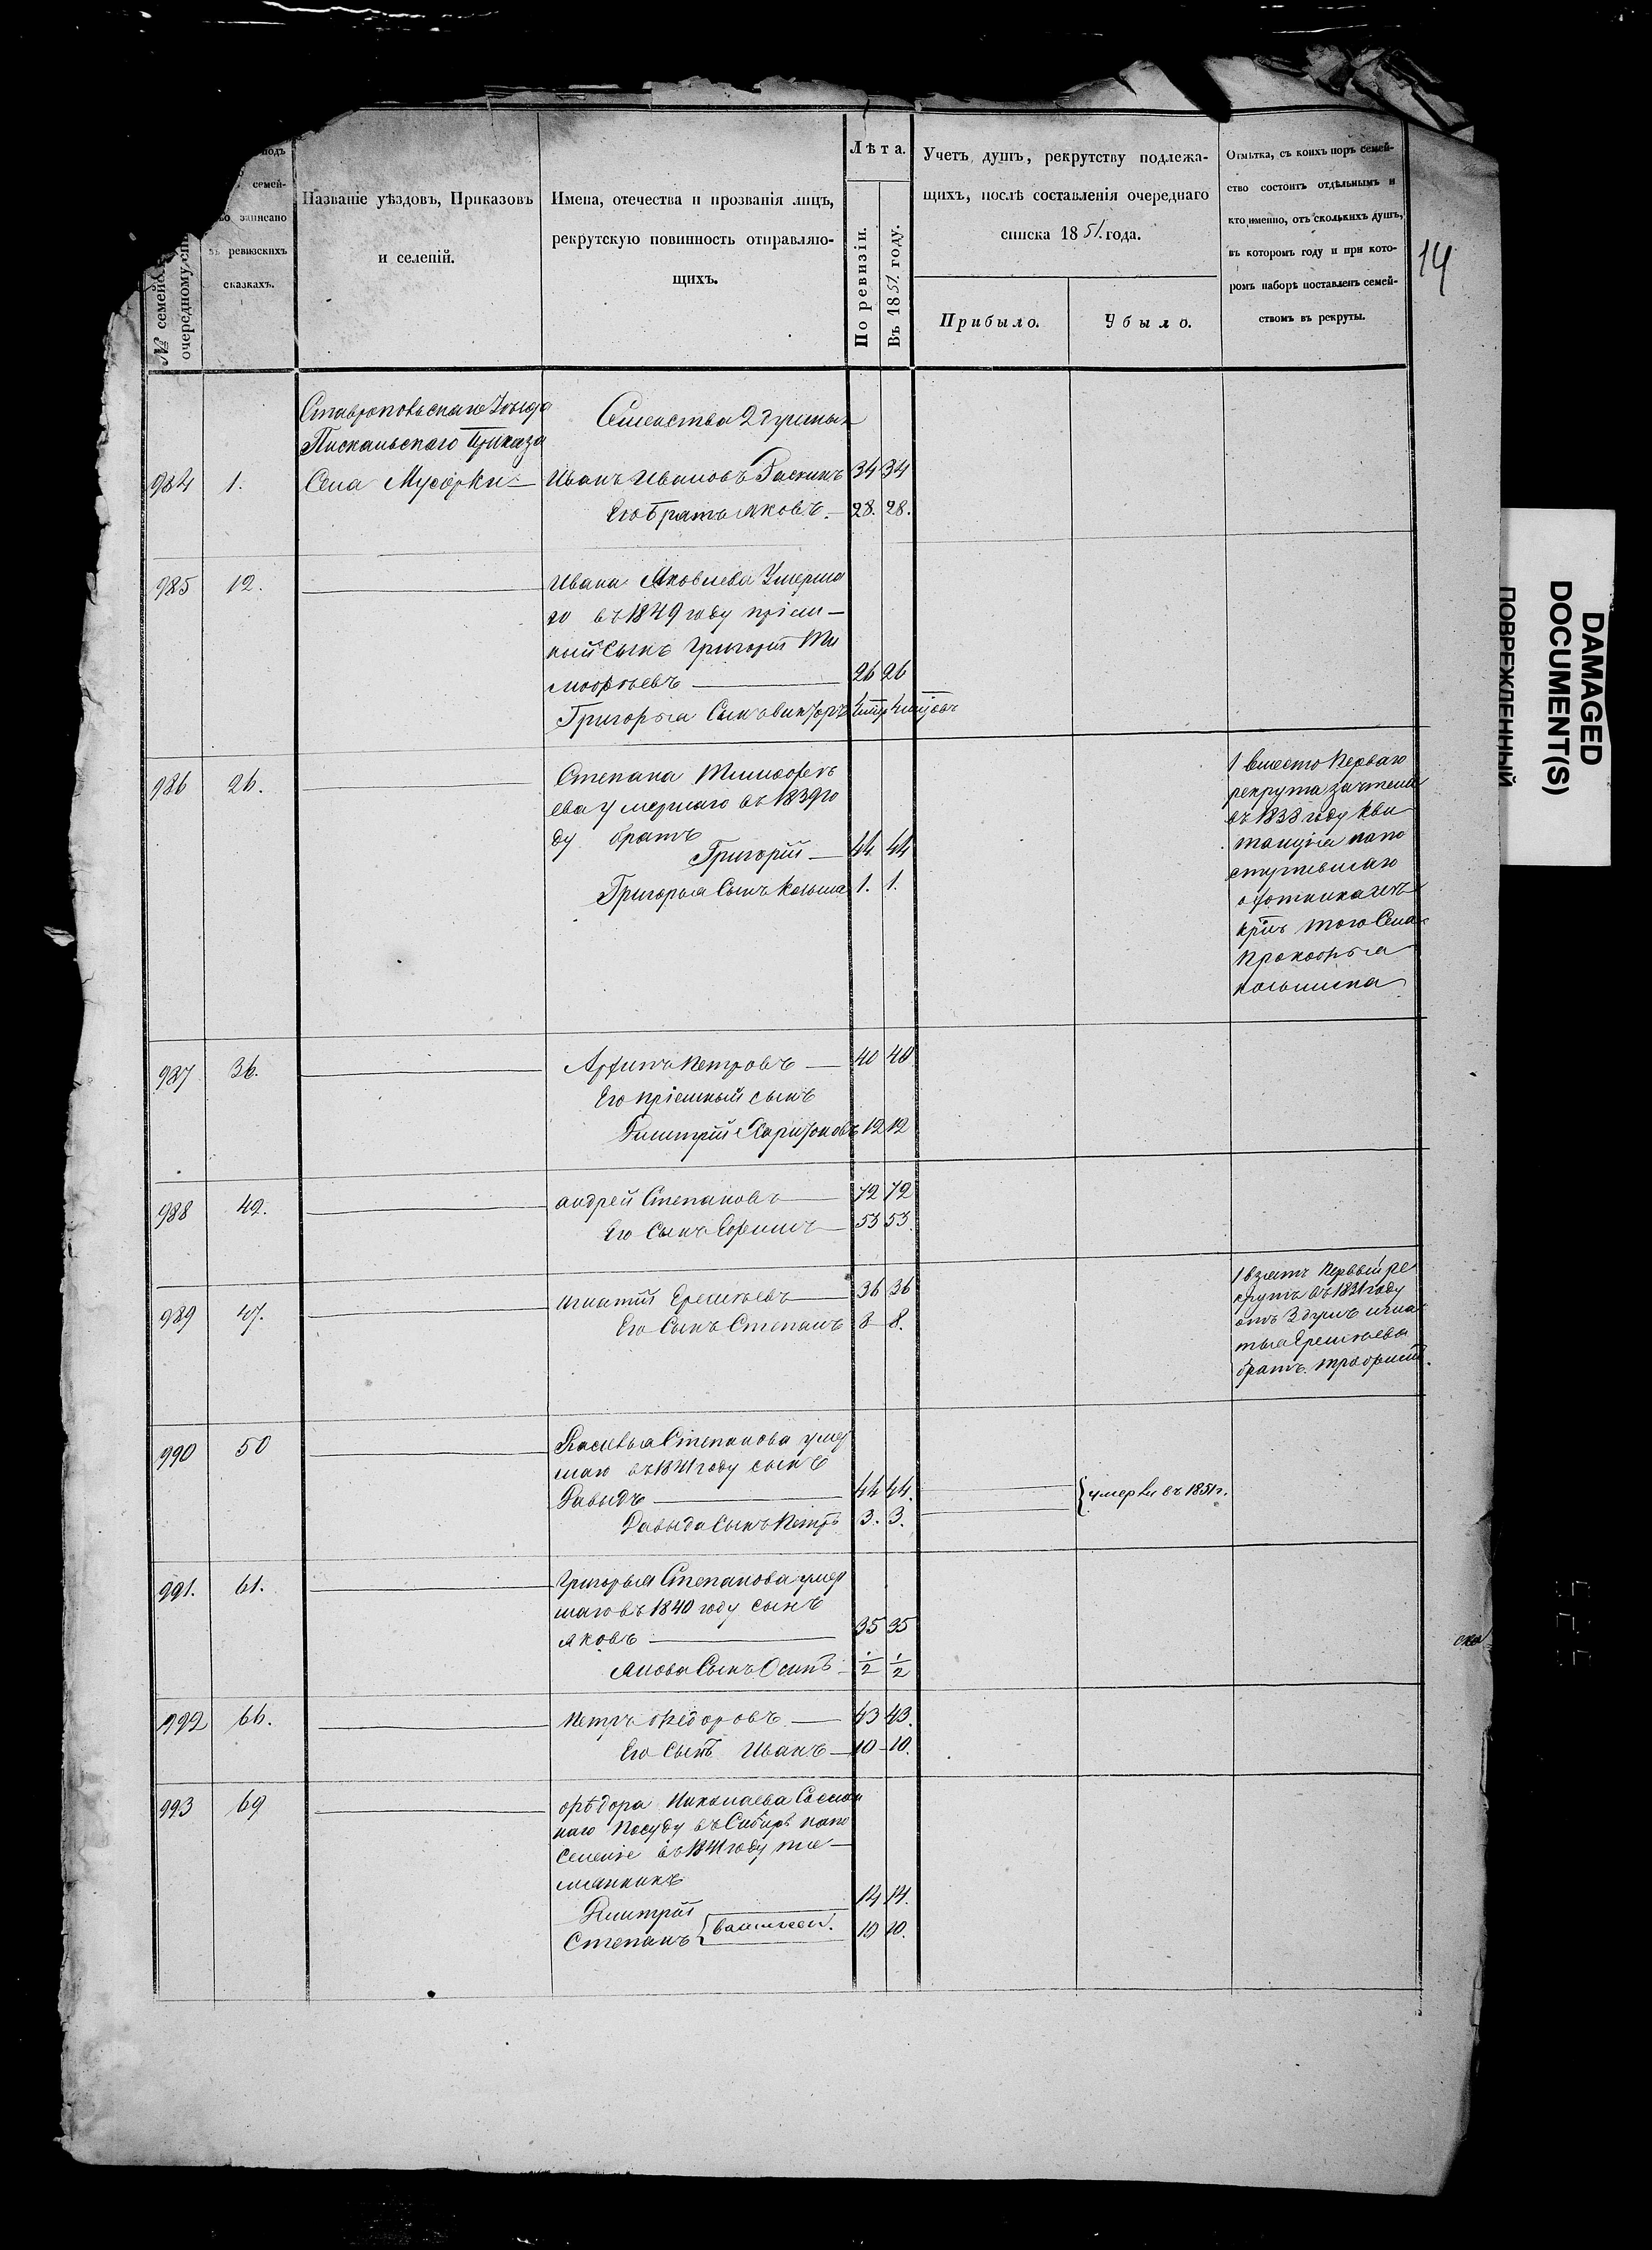 № семейс
очередному сп
подъ
семей-
во записано
въ ревизскихъ
сказкахъ.
Названіе уѣздовъ, Приказовъ
и селеній.
Имена, отчества и прозванія лицъ,
рекрутскую повинность отправляю-
щихъ.
Лѣта.
По ревизіи.
Въ 1851 году.
Учетъ душъ, рекрутству подлежа-
щихъ, послѣ составленія очереднаго
списка 1851 года.
Прибыло.
Убыло.
Отмѣтка, съ коихъ поръ семей-
ство состоитъ отдѣльнымъ и
кто именно, отъ сколькихъ душъ,
въ которомъ году и при кото-
ромъ наборѣ поставленъ семей-
ствомъ въ рекруты.
14
Ставропольскаго Уѣзда
Пискальскаго Приказа
Семейства 2 душныя
984 1. Села Мусорки Иванъ Ивановъ 34 34
Его братъ Яковъ 28. 28.
985 12. Ивана Яковлева Умерша
го въ 1849 году пріем
ный Сынъ Григорій Ти
мофѣевъ 26 26
Григорья Сынъ Викторъ
986 26. Степана Тимофѣ
ева умершаго въ 1839 го
ду братъ
Григорій 44 44
Григорья Сынъ Козьма 1. 1.
1 вмѣсто перваго
рекрута зачтена
въ 1838 году кви
танція напо
ступившаго
охотника изъ
крѣ того Села
Прокофья
козьмина
987 36. Архипъ Петровъ 40 40
Его пріемный сынъ
Дмитрій Харитоновъ 12 12
988 42. андрей Степановъ 72 72
Его Сынъ Ефимъ 53 53.
989 47. игнатій Еремѣевъ 36 36
Его Сынъ Степанъ 8 8.
1 взятъ первый ре
крутъ въ 1831 году
отъ 3 душъ игна
тья Еремѣева
братъ трофимъ.
990 50 Василья Степанова умер
шаго въ 1841 году сынъ
Давыдъ 44 44.
Давыда Сынъ Петръ 3. 3.
умерли въ 1851 г.
991. 61. Григорья Степанова умер
шаго въ 1840 году сынъ
яковъ 35 35
Якова Сынъ Осипъ 1/2 1/2
992 66. Петръ Ѳедоровъ 43 43.
Его Сынъ Иванъ 10 10.
993 69 Ѳедора Николаева Сослан
наго посуду въ Сибирь напо
селеніе въ 1841 году пле
мянники
Дмитрій 14 14.
Степанъ Васильевы. 10 10.
DAMAGED
DOCUMENT(S)
ПОВРЕЖДЕННЫЙ